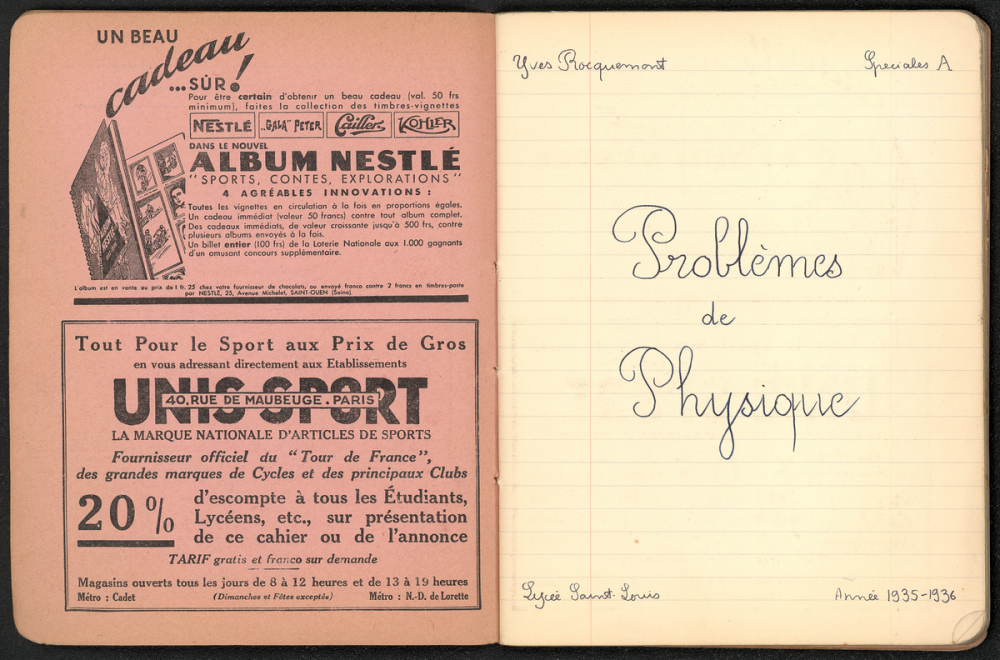 UN BEAU
cadeau
...SÛR!
Pour être certain d'obtenir un beau cadeau (val. 50 frs
minimum), faites la collection des timbres-vignettes
NESTLÉ "GALA" PETER Cailler KOHLER
DANS LE NOUVEL
ALBUM NESTLÉ
"SPORTS, CONTES, EXPLORATIONS"
4 AGRÉABLES INNOVATIONS :
Toutes les vignettes en circulation à la fois en proportions égales.
Un cadeau immédiat (valeur 50 francs) contre tout album complet.
Des cadeaux immédiats, de valeur croissante jusqu'à 500 frs, contre
plusieurs albums envoyés à la fois.
Un billet entier (100 frs) de la Loterie Nationale aux 1.000 gagnants
d'un amusant concours supplémentaire.
L'album est en vente au prix de 1 fr. 25 chez votre fournisseur de chocolats, ou envoyé franco contre 2 francs en timbres-poste
par NESTLÉ, 25, Avenue Michelet, SAINT-OUEN (Seine).
Tout Pour le Sport aux Prix de Gros
en vous adressant directement aux Etablissements
UNIS-SPORT
40, RUE DE MAUBEUGE . PARIS
LA MARQUE NATIONALE D'ARTICLES DE SPORTS
Fournisseur officiel du "Tour de France",
des grandes marques de Cycles et des principaux Clubs
20 %
d'escompte à tous les Étudiants,
Lycéens, etc., sur présentation
de ce cahier ou de l'annonce
TARIF gratis et franco sur demande
Magasins ouverts tous les jours de 8 à 12 heures et de 13 à 19 heures
Métro : Cadet (Dimanches et Fêtes exceptés) Métro : N.-D. de Lorette
Yves Rocquemont Speciales A
Problèmes
de
Physique
Lycée Saint-Louis Année 1935-1936